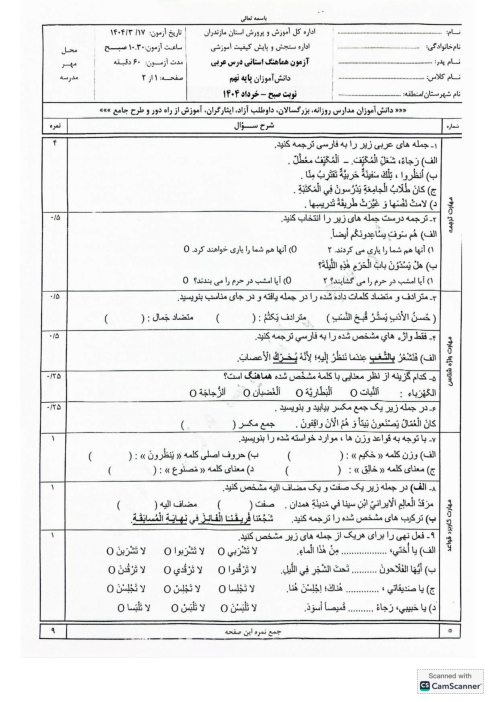 باسمه تعالی
نــام:
نام‌خانوادگی:
نــام پدر:
نــام کلاس:
نام شهرستان/منطقه:
اداره کل آموزش و پرورش استان مازندران
اداره سنجش و پایش کیفیت آموزشی
آزمون هماهنگ استانی درس عربی
دانش‌آموزان پایه نهم
نوبت صبح – خرداد ۱۴۰۴
تاریخ آزمون: ۱۴۰۴/۳/۱۷
ساعت آزمون: ۱۰.۳۰ صبـح
مدت آزمون: ۶۰ دقیقه
صفحـه: ۱ از ۲
محـل
مهـر
مدرسه
««« دانش‌آموزان مدارس روزانه، بزرگسالان، داوطلب آزاد، ایثارگران، آموزش از راه دور و طرح جامع »»»
شماره
شرح ســؤال
نمره
مهارت ترجمه
۱ـ جمله های عربی زیر را به فارسی ترجمه کنید.
۴
الف) رَجاءً، شَغِّلِ المُکَیِّفَ. – اَلمُکَیِّفُ مُعَطَّلٌ.
ب) اُنظُروا ، تِلکَ سَفینَةٌ حَربیَّةٌ تَقتَرِبُ مِنّا .
ج) کانَ طُلّابُ الجامِعَةِ یَدرُسونَ فِي المَکتَبَةِ.
د) لامَتْ نَفسَها وَ غَیَّرَتْ طَریقَةَ تَدریسِها .
۲ـ ترجمه درست جمله های زیر را انتخاب کنید.
۰/۵
الف) هُم سَوفَ یُساعِدونَکُم أیضاً.
۱) آنها هم شما را یاری می کردند. O ۲) آنها هم شما را یاری خواهند کرد. O
ب) هَل یَسُدّونَ بابَ الحَرَمِ هٰذِهِ اللَّیلَةَ؟
۱) آیا امشب در حرم را می گشایند؟ O ۲) آیا امشب در حرم را می بندند؟ O
مهارت واژه شناسی
۳ـ مترادف و متضاد کلمات داده شده را در جمله یافته و در جای مناسب بنویسید.
۰/۵
( حُسنُ الأدَبِ یَستُرُ قُبحَ النَّسَبِ ) مترادف یَکتُمُ : ( ) متضاد جَمال : ( )
۴ـ فقط واژه های مشخص شده را به فارسی ترجمه کنید.
۰/۵
الف) فَنَشعُرُ بِالتَّعَبِ عِندَما نَنظُرُ إلَیهِ؛ لِأَنَّهُ یُحَرِّكُ الأعصابَ.
۵ـ کدام گزینه از نظر معنایی با کلمهٔ مشخص شده هماهنگ است؟
۰/۲۵
الکَهرَباء : اَلنَّبات O اَلبَطّاریَّة O اَلغَضبان O اَلزُّجاجَة O
۶ـ در جمله زیر یک جمع مکسر بیابید و بنویسید .
۰/۲۵
کانَ العُمّالُ یَصنَعونَ بَیتاً وَ هُمُ الآنَ واقِفونَ . جمع مکسر ( )
مهارت کاربرد قواعد
۷ـ با توجه به قواعد وزن ها ، موارد خواسته شده را بنویسید.
۱
الف) وزن کلمه « حَکیم » : ( ) ب) حروف اصلی کلمه « یَنظُرونَ » : ( )
ج) معنای کلمه « خالِق » : ( ) د) معنای کلمه « مَصنوع » : ( )
۸ـ الف) در جمله زیر یک صفت و یک مضاف الیه مشخص کنید.
۱
مَرقَدُ العالِمِ الإیرانيِّ ابنِ سینا في مَدینَةِ هَمدان . صفت ( ) مضاف الیه ( )
ب) ترکیب های مشخص شده را ترجمه کنید. شَجَّعنا فَریقَنا الفائِزَ في نِهایَةِ المُسابَقَةِ.
۹ـ فعل نهی را برای هریک از جمله های زیر مشخص کنید.
۱
الف) یا أُختي، ................ مِن هٰذَا الماءِ. لا تَشرَبي O لا تَشرَبوا O لا تَشرَبنَ O
ب) أیُّهَا الفَلّاحونَ ........... تَحتَ الشَّجَرِ فِي اللَّیلِ. لا تَرقُدوا O لا تَرقُدي O لا تَرقُدنَ O
ج) یا صَدیقاتي ، ............ هُناكَ؛ اِجلِسنَ هُنا. لا تَجلِسا O لا تَجلِسي O لا تَجلِسنَ O
د) یا حَبیبي، رَجاءً .......... قَمیصاً أسوَدَ. لا تَلبَسنَ O لا تَلبَسْ O لا تَلبَسا O
جمع نمره این صفحه
۹
Scanned with
CS CamScanner